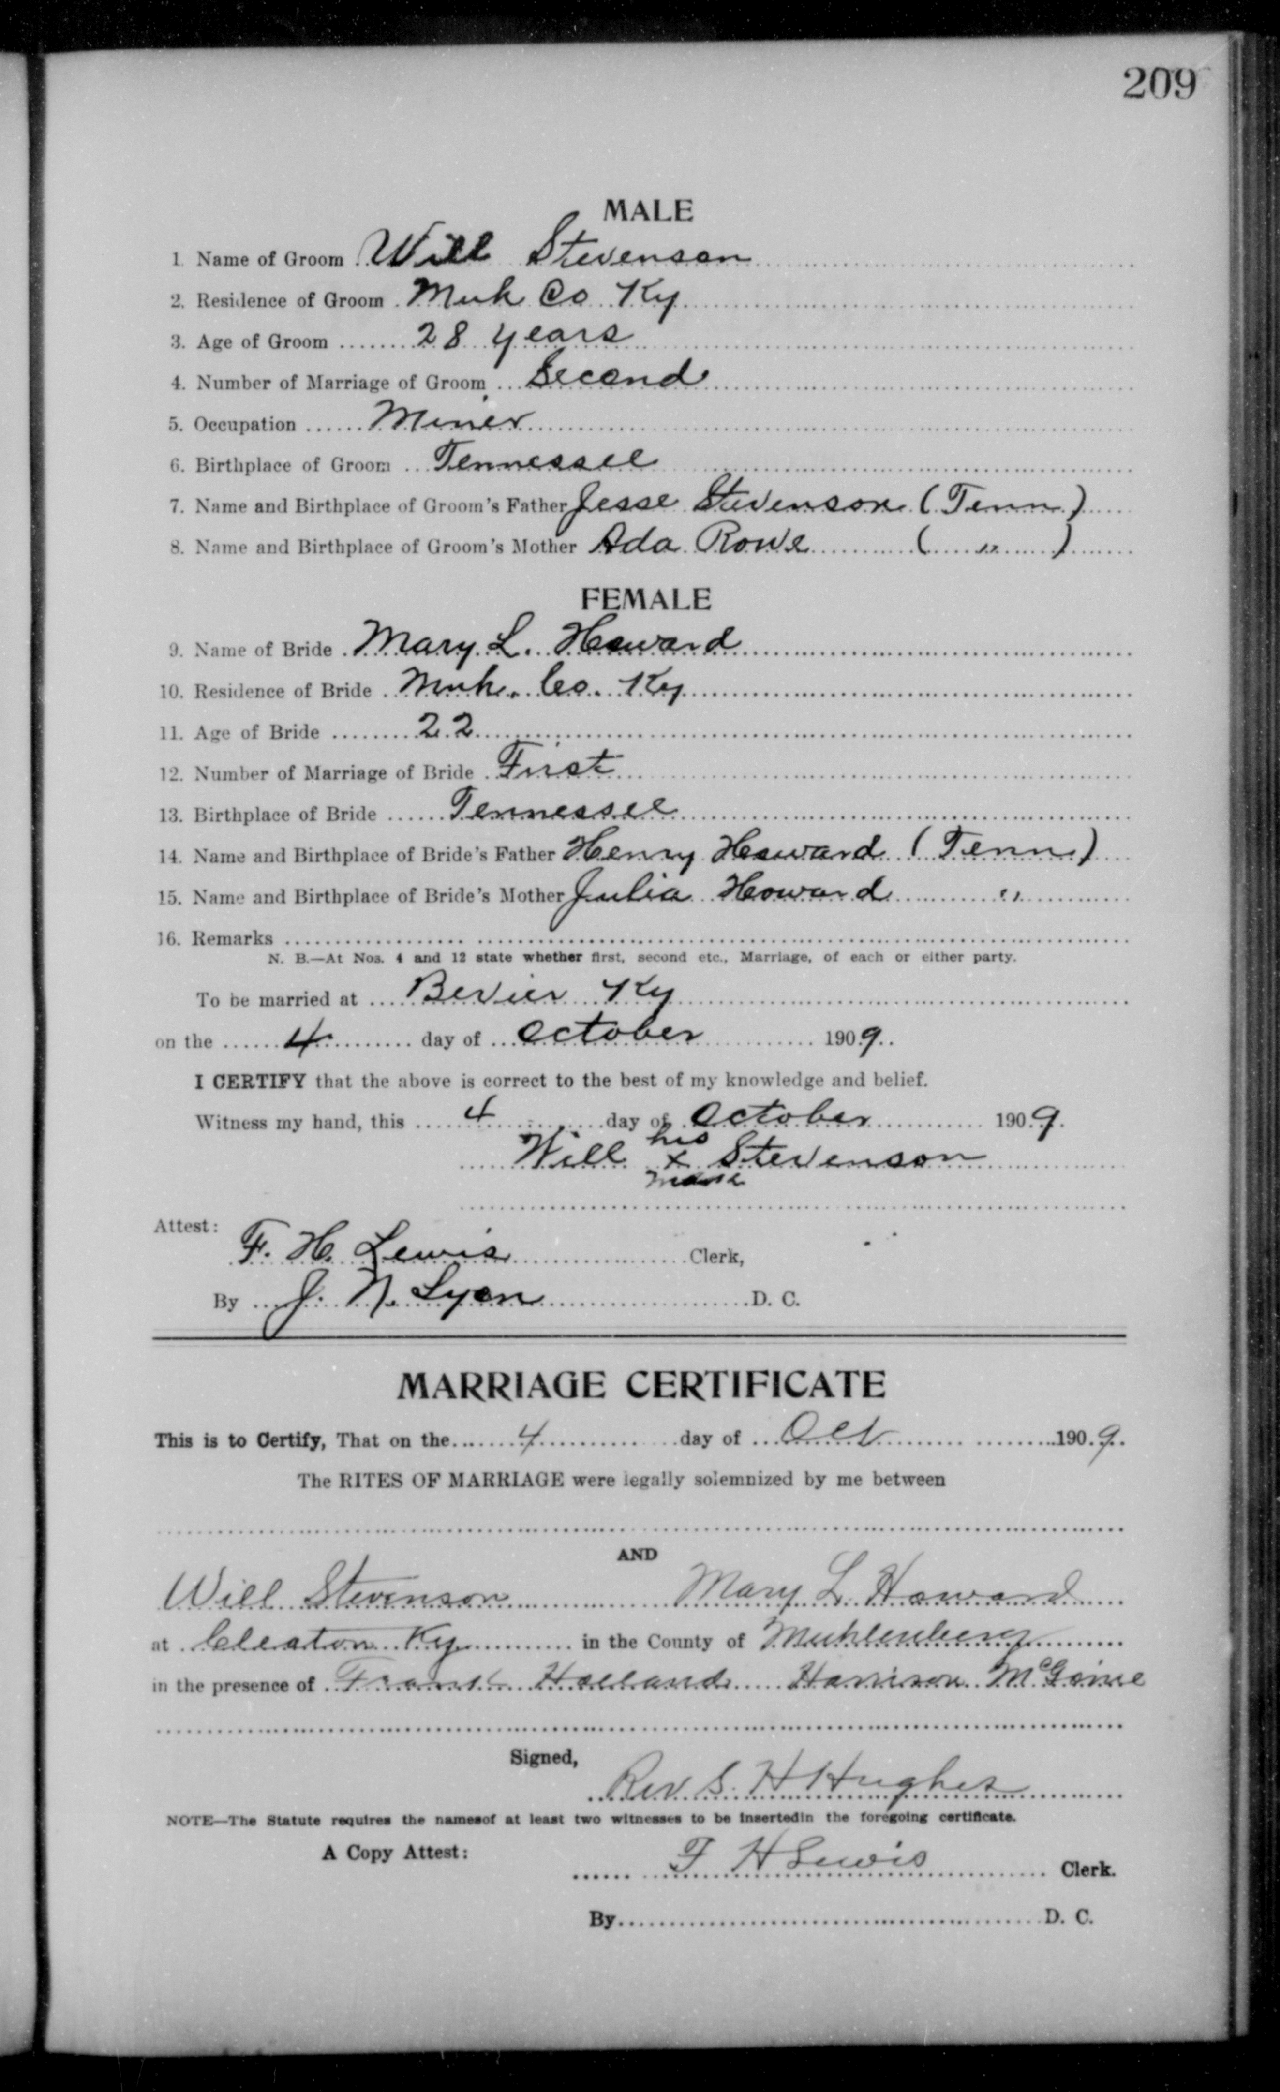 209
MALE
1. Name of Groom Will Stevenson
2. Residence of Groom Muh Co Ky
3. Age of Groom 28 years
4. Number of Marriage of Groom Second
5. Occupation Miner
6. Birthplace of Groom Tennessee
7. Name and Birthplace of Groom's Father Jesse Stevenson (Tenn)
8. Name and Birthplace of Groom's Mother Ada Rowe ( " )
FEMALE
9. Name of Bride Mary L. Howard
10. Residence of Bride Muh. Co. Ky
11. Age of Bride 22
12. Number of Marriage of Bride First
13. Birthplace of Bride Tennessee
14. Name and Birthplace of Bride's Father Henry Howard (Tenn)
15. Name and Birthplace of Bride's Mother Julia Howard "
16. Remarks
N. B.—At Nos. 4 and 12 state whether first, second etc., Marriage, of each or either party.
To be married at Bevier Ky
on the 4 day of October 1909.
I CERTIFY that the above is correct to the best of my knowledge and belief.
Witness my hand, this 4 day of October 1909.
his
Will x Stevenson
mark
Attest:
F. H. Lewis Clerk,
By J. N. Lyon D. C.
MARRIAGE CERTIFICATE
This is to Certify, That on the 4 day of Oct 1909.
The RITES OF MARRIAGE were legally solemnized by me between
AND
Will Stevenson Mary L Howard
at Cleaton Ky in the County of Muhlenberg
in the presence of Frank Holland Harrison
Signed,
Rev S. H Hughes
NOTE—The Statute requires the namesof at least two witnesses to be insertedin the foregoing certificate.
A Copy Attest:
F H Lewis Clerk.
By D. C.